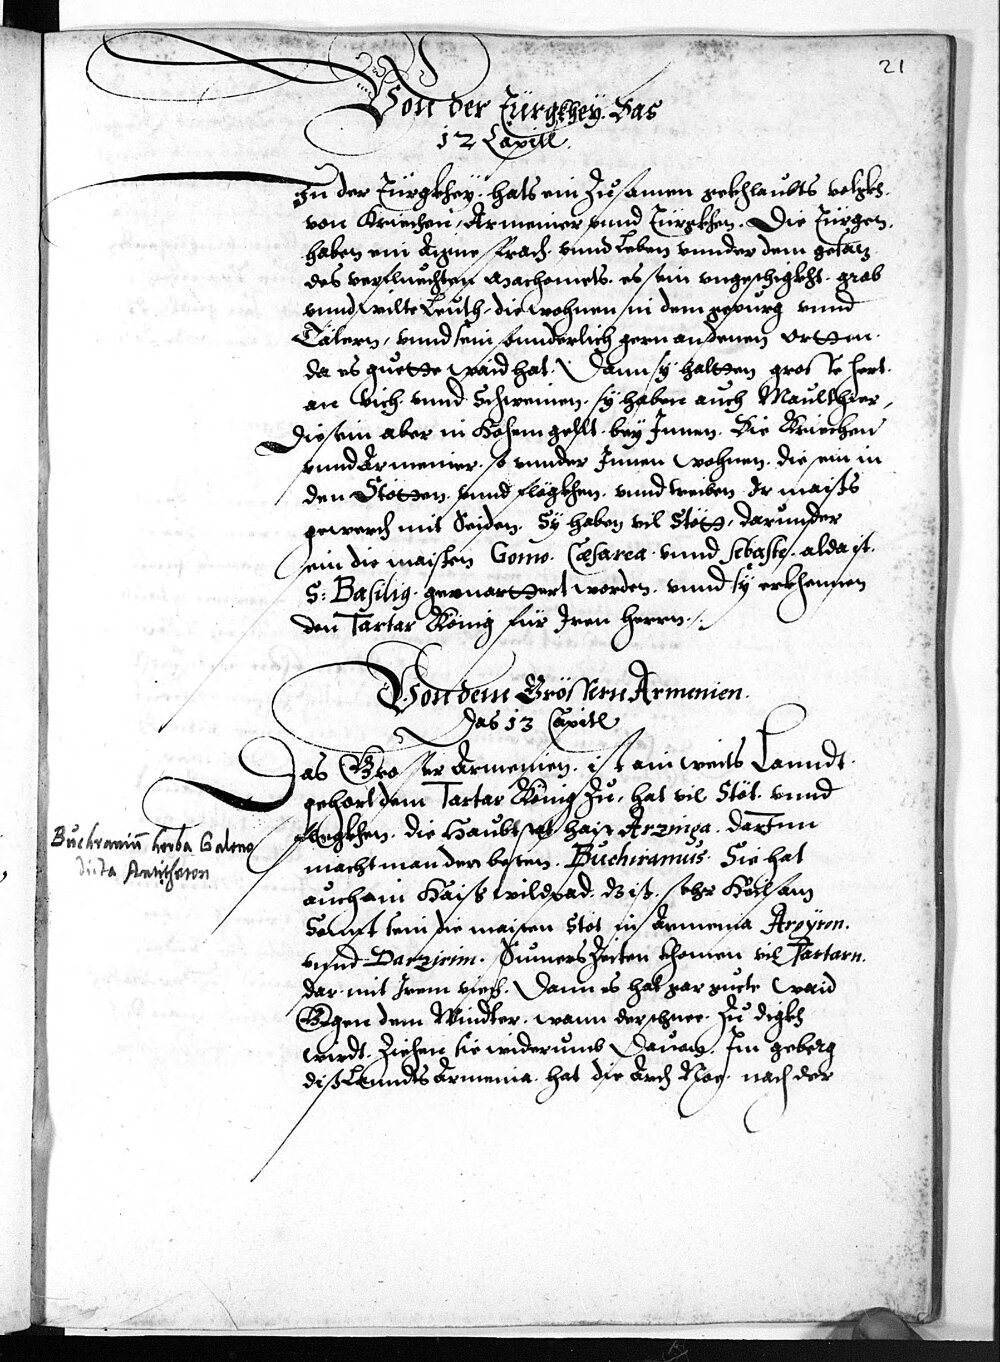 21
Von der Türgkhey. Das
12 Capitl.
In der Türgkhey. hats ein Zusamen geklaubts volgkh.
von Kriechen, Armenier, vnnd Türgkhen. Die Türgen,
haben ein Aigne sprach. vnnd Leben vnnder dem gesatz
des verfluechten Machomets. es sein vngeschigkht. grob
vnnd wilte Leuth, die wohnen in dem gepürg vnnd
Tälern, vnnd sein sunderlich gern an denen ortten.
da es guette waid hat. Dann sy haltten grosse hert.
an vich. vnnd Schweinen. sy haben auch Maulthier,
die sein aber in hohem gellt. bey Innen. Die Kriechen
vnnd Armenier. so vnnder Innen wohnen. die sein in
den Stötten. vnnd flögkhen. vnnd treiben Ir maists
gewerch mit Seiden. Sÿ haben vil Stött, darunder
sein die maisten Gomo. Cæsarea. vnnd sebaste. alda ist.
S: Basilig. gemarttert worden. vnnd sÿ erkhennen
den Tartar König für Iren herrn.
Von dem Grössern Armenien.
Das 13 Capitl
Das Grosser Armenien. ist ain weits Lanndt.
gehort dem Tartar König Zu, hat vil Stöt. vnnd
flegkhen. die Haubtstat haist Arzinga. darInn
macht man den besten. Buchiramus. Sie hat
auch ain Haiß wildpad. ds ist. sehr Heilsam
Sonst sein die maisten Stöt in Armenia Argÿron.
vnnd Darzirim. Sumers Zeiten khomen vil Tartarn.
dar. mit Irem viech. Dann es hat gar guete waid
Gegen dem Windter. wann der schnee. Zu digkh
wirdt. Ziehen sie widerumb Dauon. Im geberg
diß Lanndts Armenia. hat die Arch Noe. nach der
Buchramū herba Galeno
dicta